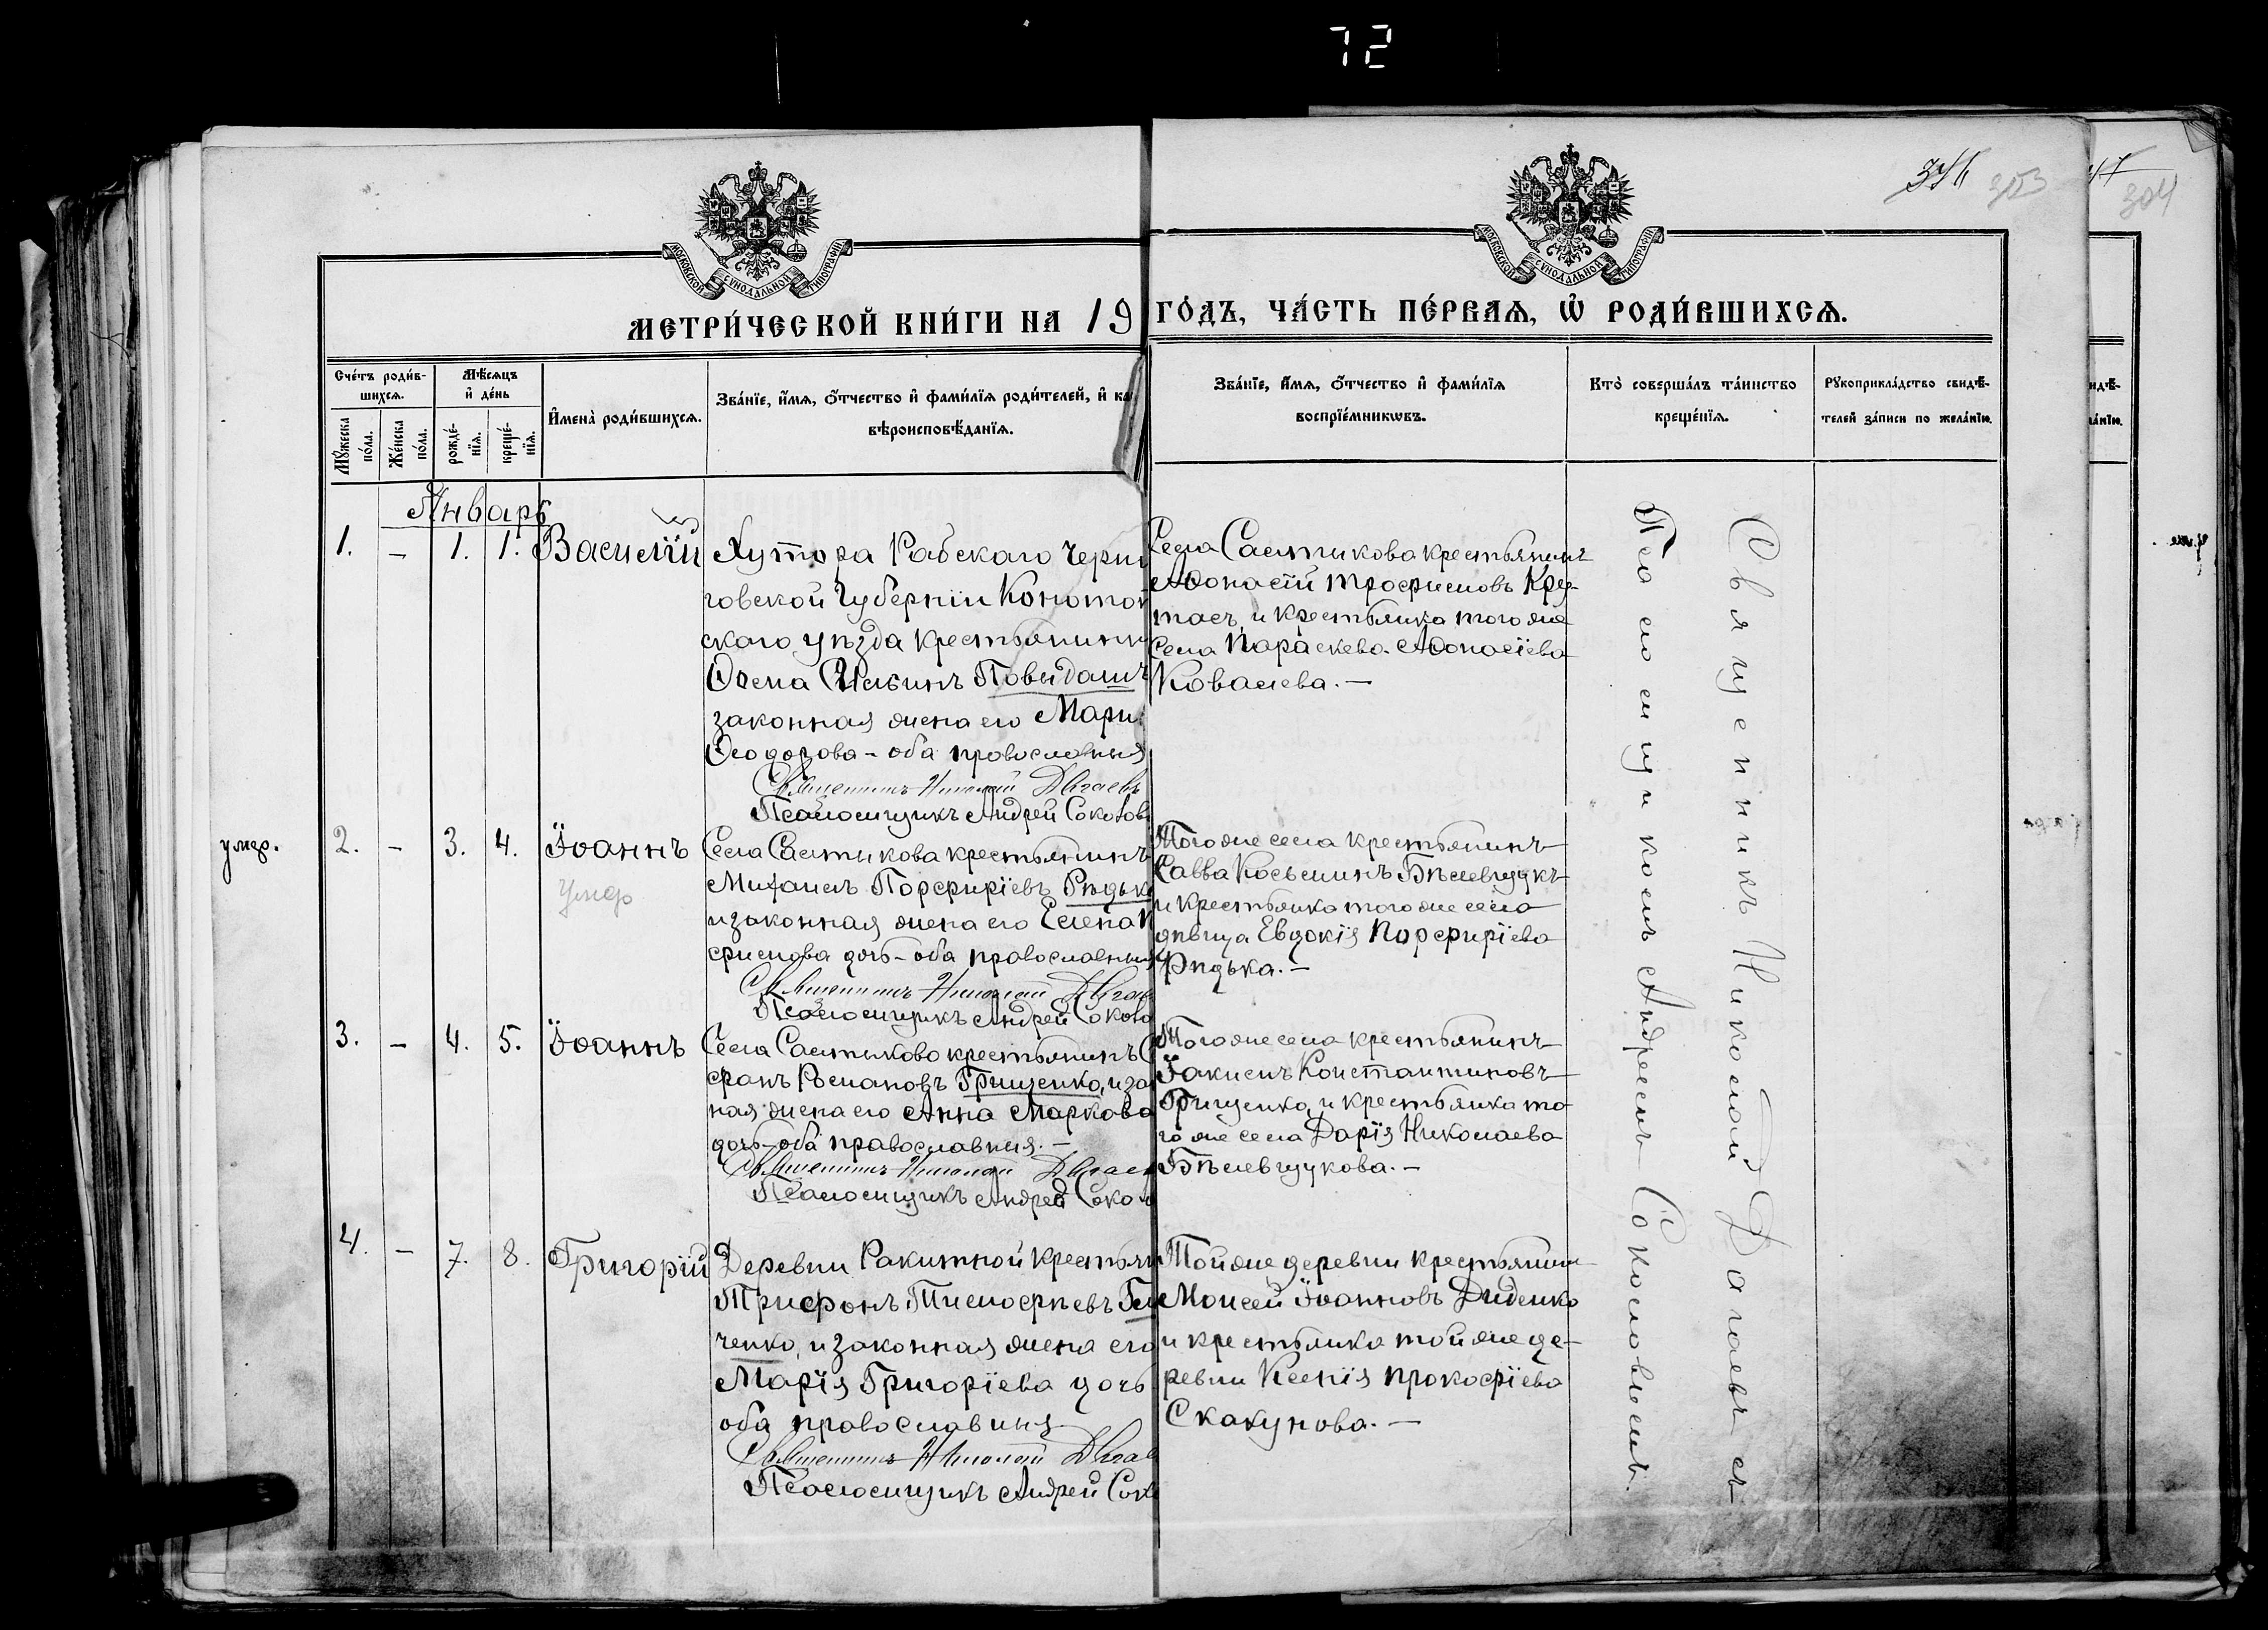 72
346
304
МОСКОВСКОЙ СѴНОДАЛЬНОЙ ТИПОГРАФІИ
МОСКОВСКОЙ СѴНОДАЛЬНОЙ ТИПОГРАФІИ
МЕТРИ́ЧЕСКОЙ КНИ́ГИ НА 19
ГО́ДЪ, ЧА́СТЬ ПЕ́РВАЯ, Ѡ҆ РОДИ́ВШИХСЯ.
Сче́тъ роди́в-
шихся.
Мꙋ́жеска
по́ла.
Же́нска
по́ла.
Мѣ́сяцъ
и҆ де́нь
рожде́-
нїя.
креще́-
нїя.
И҆мена̀ роди́вшихся.
Зва́нїе, и҆́мя, ѻ҆́тчество и҆ фами́лїя роди́телей, и҆
вѣроисповѣ́данїя.
Зва́нїе, и҆́мя, ѻ҆́тчество и҆ фами́лїя
воспрїе́мникѡвъ.
Кто̀ соверша́лъ та́инство
креще́нїя.
Рꙋкоприкла́дство свидѣ́-
телей за́писи по жела́нїю.
Январь
1. – 1. 1. Василій
Хутора Рабскаго Черни
говской Губерніи Коното
скаго уѣзда крестьянинъ
Ѳома Повидашъ
законная жена его Марі
Ѳеодорова – оба православныя
Священникъ Николай Дѣгаевъ
Псаломщикъ Андрей Соколов
Села Салтыкова крестьянинъ
Аѳонасій Трофимовъ Кру-
тась, и крестьянка того же
села Параскева Аѳонасіева
Ковалева. –
умер.
2. – 3. 4. Іоаннъ
умер
Села Салтыкова крестьянинъ
Михаилъ Порфиріевъ Рѣдьк
и законная жена его Елена
фимова дочь – оба православныя
Священникъ Николай Дѣгае
Псаломщикъ Андрей Соколо
Того же села крестьянинъ
Савва Косьминъ Бѣлевщукъ
и крестьянка того же села
дѣвица Евдокія Порфиріева
Рѣдька. –
3. – 4. 5. Іоаннъ
Села Салтыкова крестьянинъ
фанъ Романовъ Грищенко, и зак
ная жена его Анна Маркова
дочь – оба православныя. –
Священникъ Николай Дѣгаев
Псаломщикъ Андрей Сокол
Того же села крестьянинъ
Іакимъ Константиновъ
Грищенко, и крестьянка то
го же села Дарія Николаева
Бѣлевщукова. –
4. – 7. 8. Григорій
Деревни Ракитной крестьян
Трифонъ Тимофѣевъ
ченко, и законная жена его
Марія Григоріева дочь
оба православныя
Священникъ Николай Дѣгае
Псаломщикъ Андрей Сок
Той же деревни крестьянинъ
Моисей Іоанновъ Диденко
и крестьянка той же де-
ревни Ксенія Прокофіева
Скакунова. –
Священникъ Николай Дѣгаевъ съ
Псаломщикомъ Андреемъ Соколовымъ.